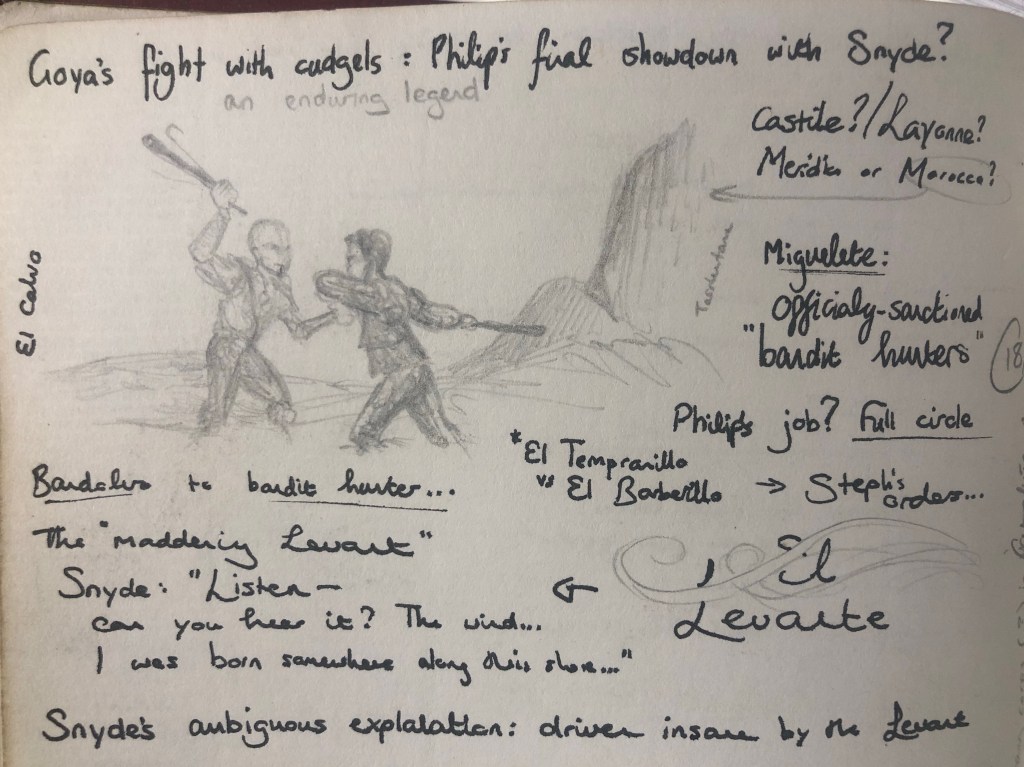 Goya's fight with cudgels : Philip's final showdown with Snyde?
an enduring legend
Castile?/Layonne?
Meridia or Morocco?
El Calvo
Miguelete:
Officialy-sanctioned
"bandit hunters"
18
Philip's job? Full circle
*El Tempranillo
vs El Barberillo → Steph's
orders...
to bandit hunter...
The "maddening Levant"
Snyde: "Listen –
can you hear it? The wind...
I was born somewhere along this shore..."
El
Levante
Snyde's ambiguous explanation: driven insane by the Levant